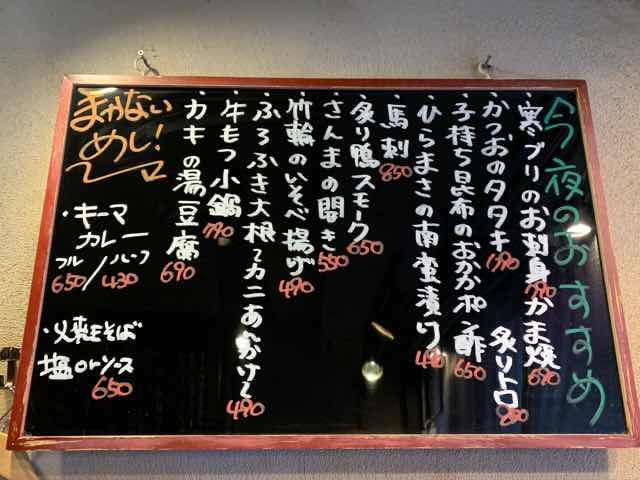 今夜のおすすめ
・寒ブリのお刺身 790 かま焼 690
・かつおのタタキ 790 炙りトロ
・子持ち昆布のおかかポン酢 650
・ひらまさの南蛮漬け 490
・馬刺 850
・炙り鴨スモーク 650
・さんまの開き 550
・竹輪のいそべ揚げ 490
・ふろふき大根〜カニあんかけ〜 490
・牛もつ小鍋 790
・カキの湯豆腐 690
まかない
めし!
・キーマ
カレー
フル/ハーフ
650/430
・焼きそば
塩orソース
650